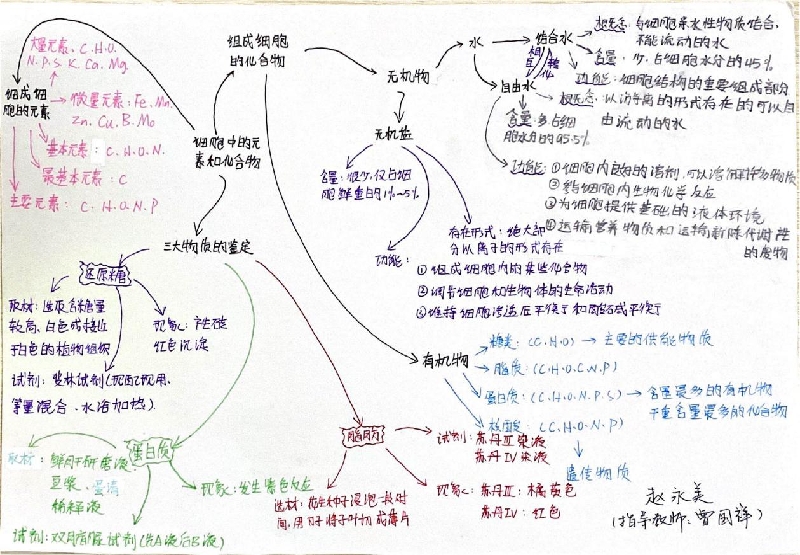 大量元素:C.H.O.
N.P.S.K.Ca.Mg
组成细
胞的元素
微量元素:Fe.Mn
Zn.Cu.B.Mo
基本元素:C.H.O.N.
最基本元素:C
主要元素:C.H.O.N.P
组成细胞
的化合物
细胞中的元
素和化合物
无机物
水
结合水
相互转化
自由水
概念:与细胞亲水性物质结合,
不能流动的水
含量:少,占细胞水分的4.5%
功能:细胞结构的重要组成部分
概念:以游离的形式存在的可以自
由流动的水
含量:多占细
胞水分的95.5%
功能:①细胞内良好的溶剂,可以溶解许多物质
②参与细胞内生物化学反应
③为细胞提供基础的液体环境
④运输营养物质和运输新陈代谢产生
的废物
无机盐
含量:很少,仅占细
胞鲜重的1%~5%
存在形式:绝大部
分以离子的形式存在
功能:
①组成细胞内的某些化合物
②调节细胞和生物体的生命活动
③维持细胞渗透压平衡和酸碱平衡
三大物质的鉴定
还原糖
取材:选取含糖量
较高,白色或接近
于白色的植物组织
现象:产生砖
红色沉淀
试剂:斐林试剂(现配现用,
等量混合、水浴加热).
有机物
糖类:(C.H.O)→主要的供能物质
脂质:(C.H.O.C.N.P)
蛋白质:(C.H.O.N.P.S)→含量最多的有机物
干重含量最多的化合物
核酸:(C.H.O.N.P)
遗传物质
蛋白质
取材:鲜肝研磨液
豆浆、蛋清
稀释液
现象:发生紫色反应
试剂:双缩脲试剂(先A液后B液)
脂肪
试剂:苏丹Ⅲ染液
苏丹IV染液
选材:花生种子浸泡一段时
间,用刀将子叶切成薄片
现象:苏丹Ⅲ:橘黄色
苏丹IV:红色
赵永美
(指导教师:曾国祥)